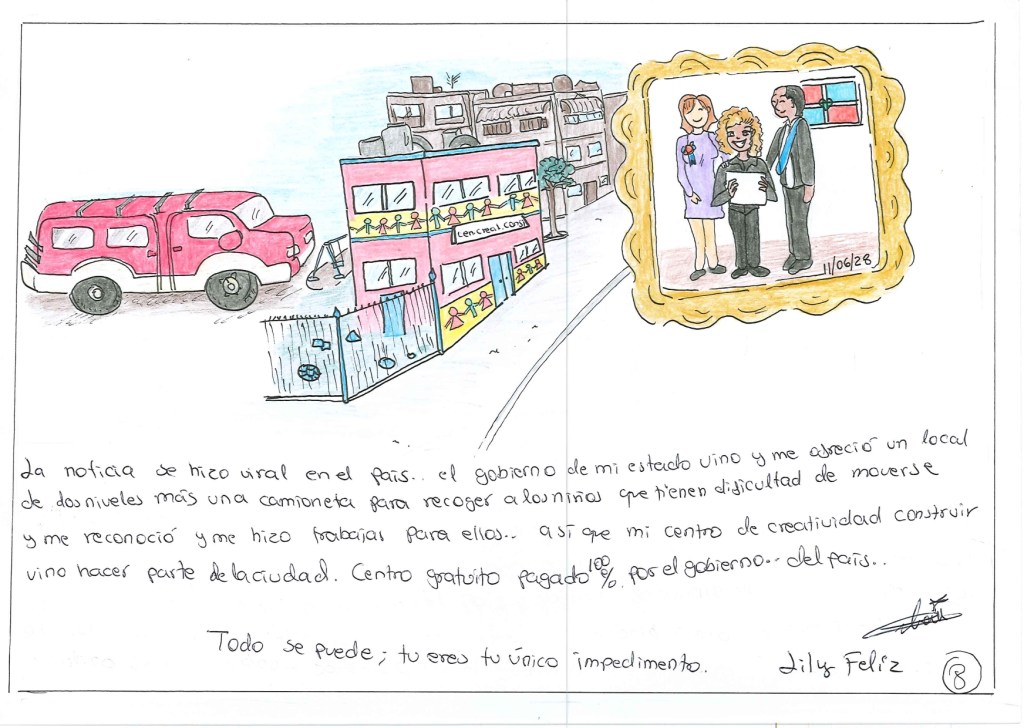 cen.creat.const
11/06/28
La noticia se hizo viral en el país.. el gobierno de mi estado vino y me ofreció un local
de dos niveles más una camioneta para recoger a los niños que tienen dificultad de moverse
y me reconoció y me hizo trabajar para ellos.. así que mi centro de creatividad construir
vino hacer parte de la ciudad. Centro gratuito pagado 100% por el gobierno.. del país..
Todo se puede; tu eres tu único impedimento.
Lily Feliz
8